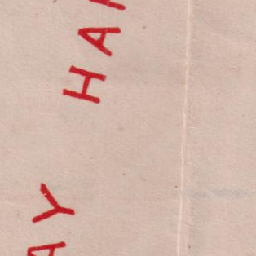 AY HA